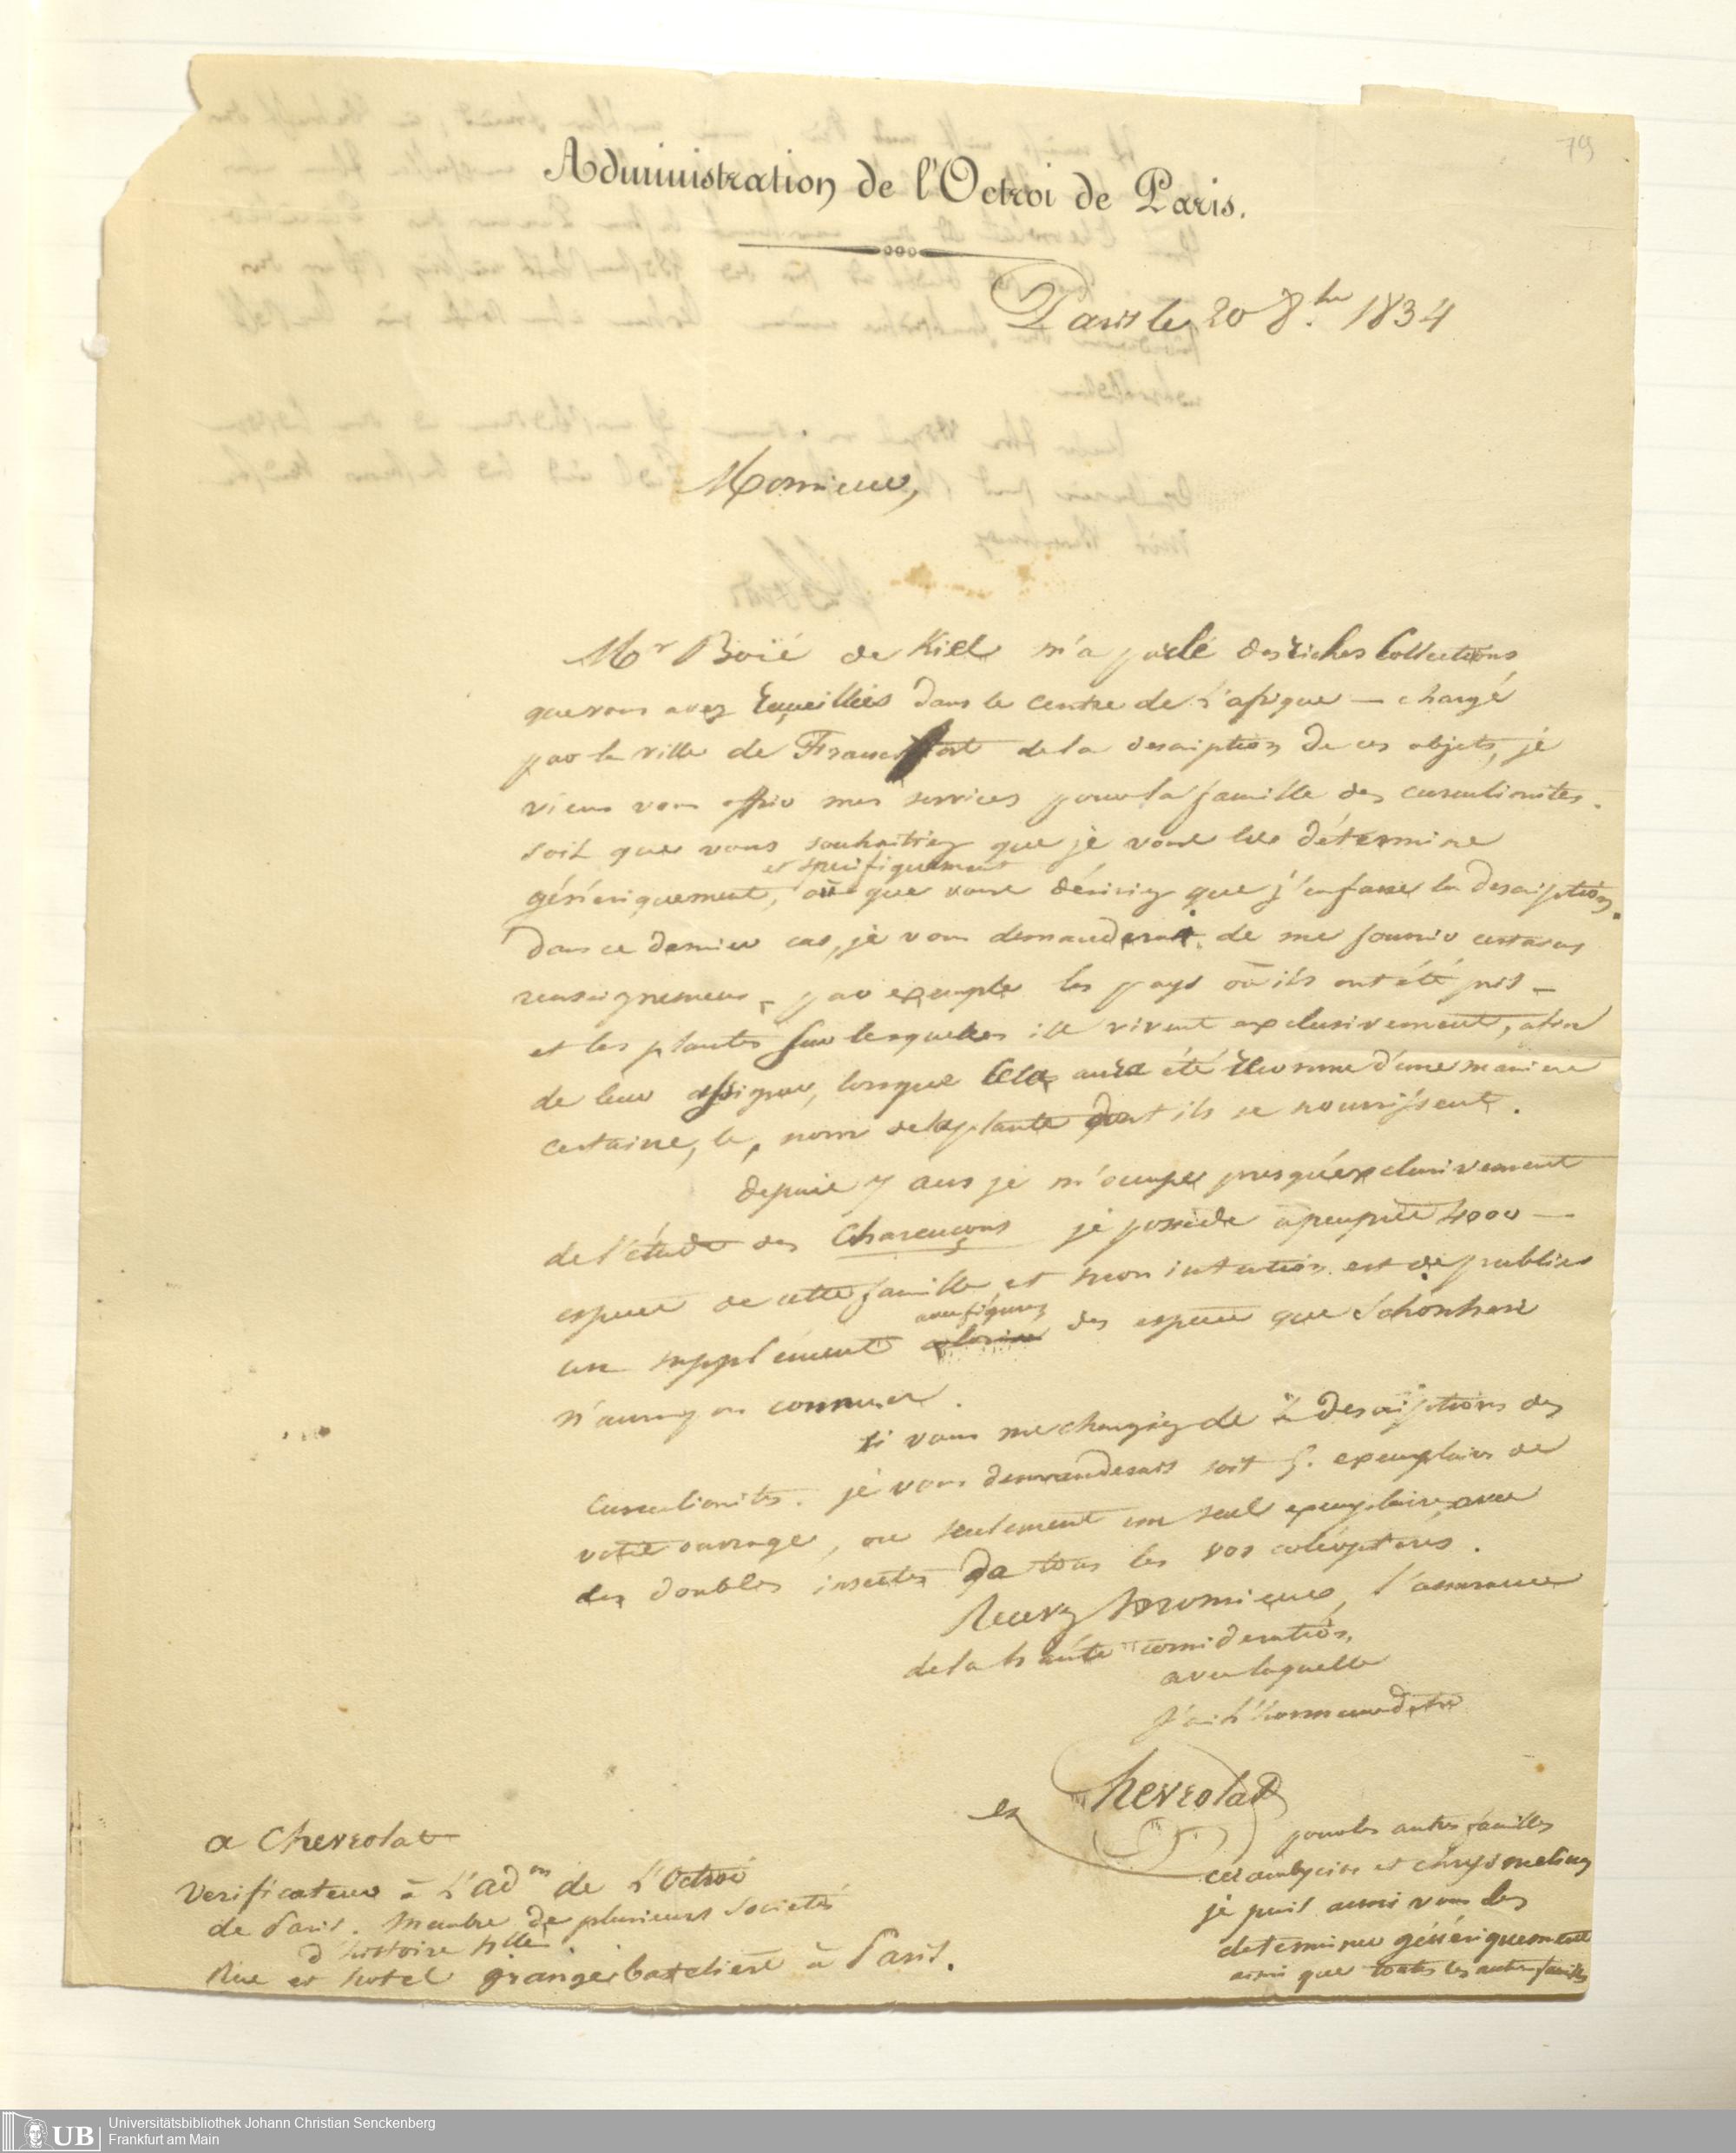 79
Administration de l'Octroi de Paris.
Paris le 20 8.bre 1834
Monsieur,
Mr Boïé de Kiel m'a parlé des riches Collections
que vous avez recueillies dans le centre de l'afrique — chargé
par la ville de Francfort de la description de ces objets, je
viens vous offrir mes services pour la famille des curculionites.
soit que vous souhaitiez que je vous les détermine
et specifiquement
génériquement, ou que vous désiriez que j'en fasse la description.
dans ce dernier cas, je vous demanderai de me fournir certains
renseignemens, par exemple les pays où ils ont été pris —
et les plantes sur lesquelles ils vivent exclusivement, afin
de leur assigner, lorsque cela aura été reconnu d'une maniere
certaine, le nom de la plante dont ils se nourrissent.
depuis 7 ans je m'occupe presqu'exclusivement
de l'étude des Charençons je possède apeuprès 4000 —
especes de cette famille, et mon intention est de publier
avec figures
un supplément des especes que Schonherr
n'auroy en connues.
si vous me chargiez de la description des
Curculionites. je vous demanderais soit 5. exemplaires de
votre ouvrage, ou seulement un seul exemplaire avec
des doubles insectes de tous les vos coléoptères.
Recevez Monsieur, l'assurance
de la haute consideration,
avec laquelle
J'ai l'honneur d'etre
Chevrolat
a Chevrolat
Verificateur à l'adon de l'Octroi
de Paris. Membre de plusieurs Societés
d'histoire nlle.
Rue et hotel grange batelière à Paris.
pour les autres familles
cérambycins et chrysomelines
je puis aussi vous les
determiner génériquement
ainsi que toutes les autres familles
UB
Universitätsbibliothek Johann Christian Senckenberg
Frankfurt am Main